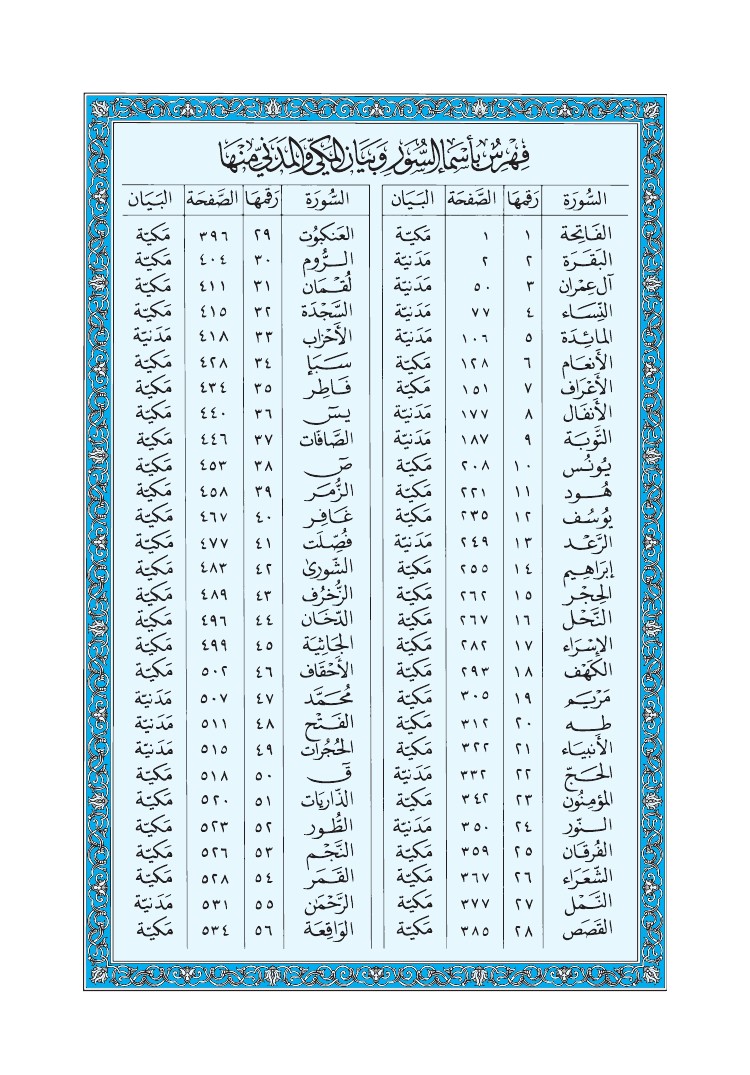 فِهْرِسٌ بِأَسْمَاءِ السُّوَرِ وَبَيَانِ المَكِّيِّ وَالمَدَنِيِّ مِنْهَا
السُّورَة رَقمهَا الصَّفحَة البَيَان السُّورَة رَقمهَا الصَّفحَة البَيَان
الفَاتِحَة ١ ١ مَكيّة العَنكبُوت ٢٩ ٣٩٦ مَكيّة
البَقَرَة ٢ ٢ مَدَنيّة الرُّوم ٣٠ ٤٠٤ مَكيّة
آل عِمْرَان ٣ ٥٠ مَدَنيّة لُقمَان ٣١ ٤١١ مَكيّة
النِّسَاء ٤ ٧٧ مَدَنيّة السَّجْدَة ٣٢ ٤١٥ مَكيّة
المَائِدَة ٥ ١٠٦ مَدَنيّة الأَحْزَاب ٣٣ ٤١٨ مَدَنيّة
الأَنعَام ٦ ١٢٨ مَكيّة سَبَإ ٣٤ ٤٢٨ مَكيّة
الأَعْرَاف ٧ ١٥١ مَكيّة فَاطِر ٣٥ ٤٣٤ مَكيّة
الأَنفَال ٨ ١٧٧ مَدَنيّة يسٓ ٣٦ ٤٤٠ مَكيّة
التَّوبَة ٩ ١٨٧ مَدَنيّة الصَّافات ٣٧ ٤٤٦ مَكيّة
يُونُس ١٠ ٢٠٨ مَكيّة صٓ ٣٨ ٤٥٣ مَكيّة
هُود ١١ ٢٢١ مَكيّة الزُّمَر ٣٩ ٤٥٨ مَكيّة
يُوسُف ١٢ ٢٣٥ مَكيّة غَافِر ٤٠ ٤٦٧ مَكيّة
الرَّعْد ١٣ ٢٤٩ مَدَنيّة فُصِّلَت ٤١ ٤٧٧ مَكيّة
إبرَاهِيم ١٤ ٢٥٥ مَكيّة الشّورىٰ ٤٢ ٤٨٣ مَكيّة
الحِجْر ١٥ ٢٦٢ مَكيّة الزّخْرُف ٤٣ ٤٨٩ مَكيّة
النَّحْل ١٦ ٢٦٧ مَكيّة الدّخَان ٤٤ ٤٩٦ مَكيّة
الإسْرَاء ١٧ ٢٨٢ مَكيّة الجَاثِيَة ٤٥ ٤٩٩ مَكيّة
الكَهْف ١٨ ٢٩٣ مَكيّة الأَحْقاف ٤٦ ٥٠٢ مَكيّة
مَريَم ١٩ ٣٠٥ مَكيّة مُحَمَّد ٤٧ ٥٠٧ مَدَنيّة
طه ٢٠ ٣١٢ مَكيّة الفَتْح ٤٨ ٥١١ مَدَنيّة
الأَنبيَاء ٢١ ٣٢٢ مَكيّة الحُجُرات ٤٩ ٥١٥ مَدَنيّة
الحَجّ ٢٢ ٣٣٢ مَدَنيّة قٓ ٥٠ ٥١٨ مَكيّة
المؤمنُون ٢٣ ٣٤٢ مَكيّة الذّارِيَات ٥١ ٥٢٠ مَكيّة
النّور ٢٤ ٣٥٠ مَدَنيّة الطُّور ٥٢ ٥٢٣ مَكيّة
الفُرقان ٢٥ ٣٥٩ مَكيّة النَّجْم ٥٣ ٥٢٦ مَكيّة
الشّعَرَاء ٢٦ ٣٦٧ مَكيّة القَمَر ٥٤ ٥٢٨ مَكيّة
النَّمْل ٢٧ ٣٧٧ مَكيّة الرَّحْمٰن ٥٥ ٥٣١ مَدَنيّة
القَصَص ٢٨ ٣٨٥ مَكيّة الوَاقِعَة ٥٦ ٥٣٤ مَكيّة